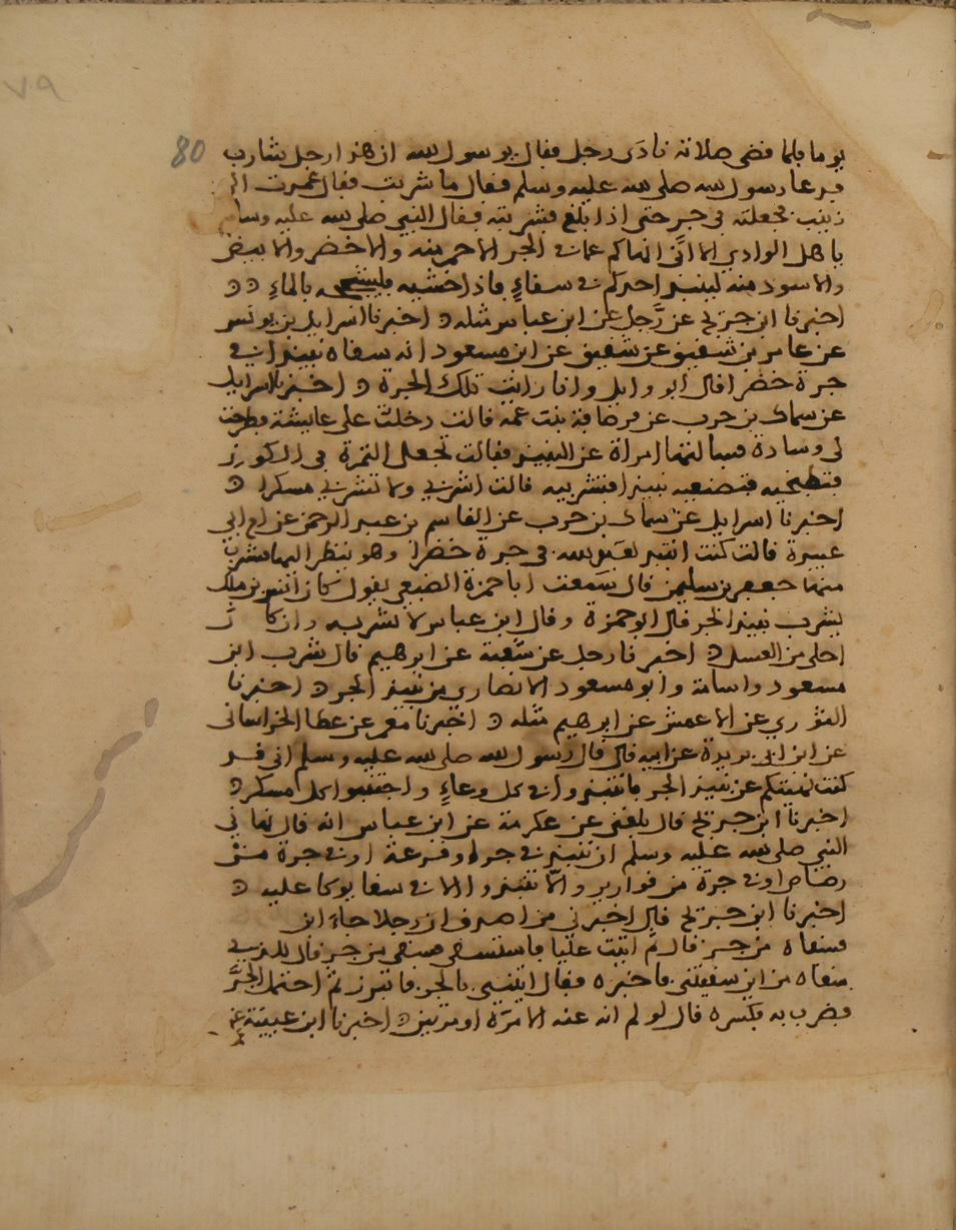 80
٧٩
يوما فلما قضى صلاته نادى رجل فقال يرسول الله ان هذا رجل شارب
فدعا رسول الله صلى الله عليه وسلم فقال ما شربت فقال عمدت الى
زبيب فجعلته في جر حتى اذا بلغ فشربته فقال النبي صلى الله عليه وسلم
يا اهل الوادي الا اني انهاكم عما في الجر الاحمر منه والاخضر والابيض
والاسود منه لينبذ احدكم في سقاءٍ فاذا خشيه فليشججه بالماءِ
اخبرنا ابن جريج عن رجل عن ابن عباس مثله اخبرنا اسرايل بن يونس
عن عامر بن شقيق عن شقيق عن ابن مسعود انه سقاه نبيذا في
جرة خضرا قال ابو وايل وانا رايت تلك الجرة اخبرنا اسرايل
عن سماك بن حرب عن قرصافة بنت عمه قالت دخلت على عايشة فطرحت
لي وسادة فسالتها امراة عن النبيذ فقالت نجعل التمرة في الكوز
فنطبخه فنصنعه نبيذا فنشربه قالت اشربي ولا تشربي مسكرا
اخبرنا اسرايل عن سماك بن حرب عن القاسم بن عبد الرحمن عن ام ابي
عبيدة قالت كنت انبذ لعبد الله في جرة خضرا وهو ينظر اليها فيشرب
منها جعفر بن سليمن قال سمعت ابا حمزة الضبعي يقول كان انس بن ملك
يشرب نبيذ الجر قال ابو حمزة وقال ابن عباس لا تشربه وان كان
احلى من العسل اخبرنا رجل عن شعبة عن ابرهيم قال شرب ابن
مسعود واسامة وابو مسعود الانصاري من نبيذ الجر اخبرنا
الثوري عن الاعمش عن ابرهيم مثله اخبرنا معمر عن عطا الخراساني
عن ابن ابي بريدة عن ابيه قال قال رسول الله صلى الله عليه وسلم اني قد
كنت نهيتكم عن نبيذ الجر فانتبذوا في كل وعاءٍ واجتنبوا كل مسكر
اخبرنا ابن جريج قال بلغني عن عكرمة عن ابن عباس انه قال نهاني
النبي صلى الله عليه وسلم ان ننبذ في جرة وقرعة او في جرة من
رصاص او في جرة من قوارير والا ننبذ الا في سقا يوكا عليه
اخبرنا ابن جريج قال اخبرني من اصدق ان رجلا جاء ابن
فسقاه من جر قال ثم اتيت عليا فاستسقى من جر قال للذي
سقاه من اين سقيتني فاخبره فقال ايتني بالجر فاتبرز ثم احتمل الجر
فضرب به فكسره قال لو لم انه عنه الا مرة او مرتين اخبرنا ابن عيينة عن